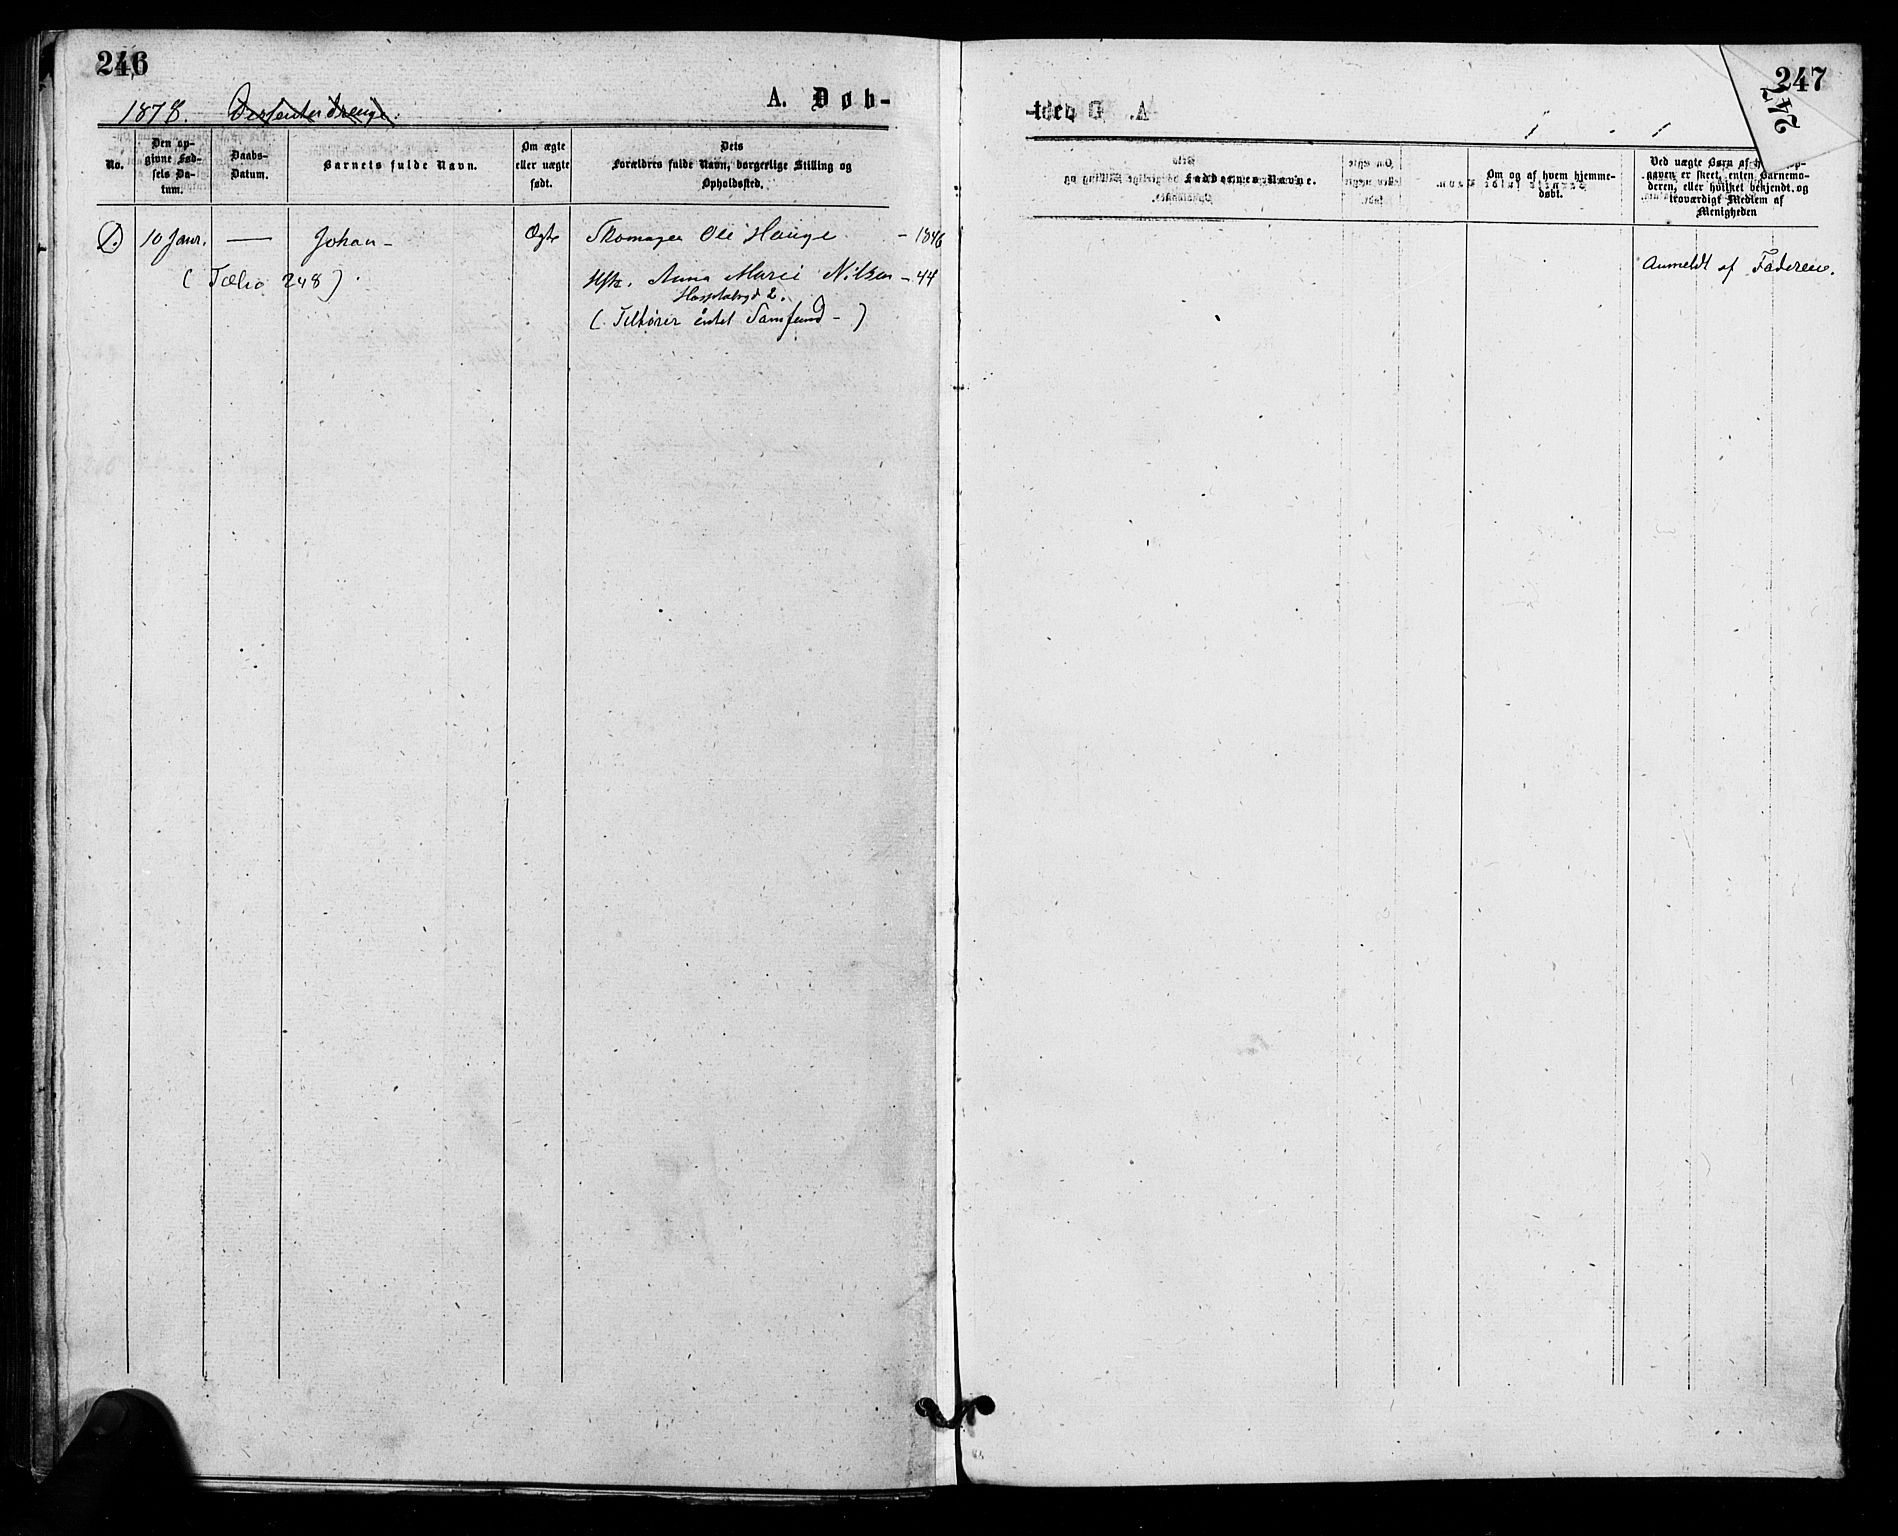 246
1878. Dissenter drenge.
A. Døb-
No.
Den op-
givne Fød-
sels Da-
tum.
Daabs-
Datum.
Barnets fulde Navn.
Om ægte
eller uægte
født.
Dets
Forældres fulde Navn, borgerlige Stilling og
Opholdssted.
1. 10 Janr. — Johan - Ægte Skomager Ole Hauge - 1846
( 248 ) Hstr. Anna Marie Nilsen - 44
2.
( Tilhører intet Samfund - )
247
247
Faddernes Navne.
Om og af hvem hjemme-
døbt.
Ved uægte Børn af hvem Op-
gaven er skeet, enten Barnemo-
deren, eller hvilket bekjendt og
troværdigt Medlem af
Menigheden
Anmeldt af Faderen.